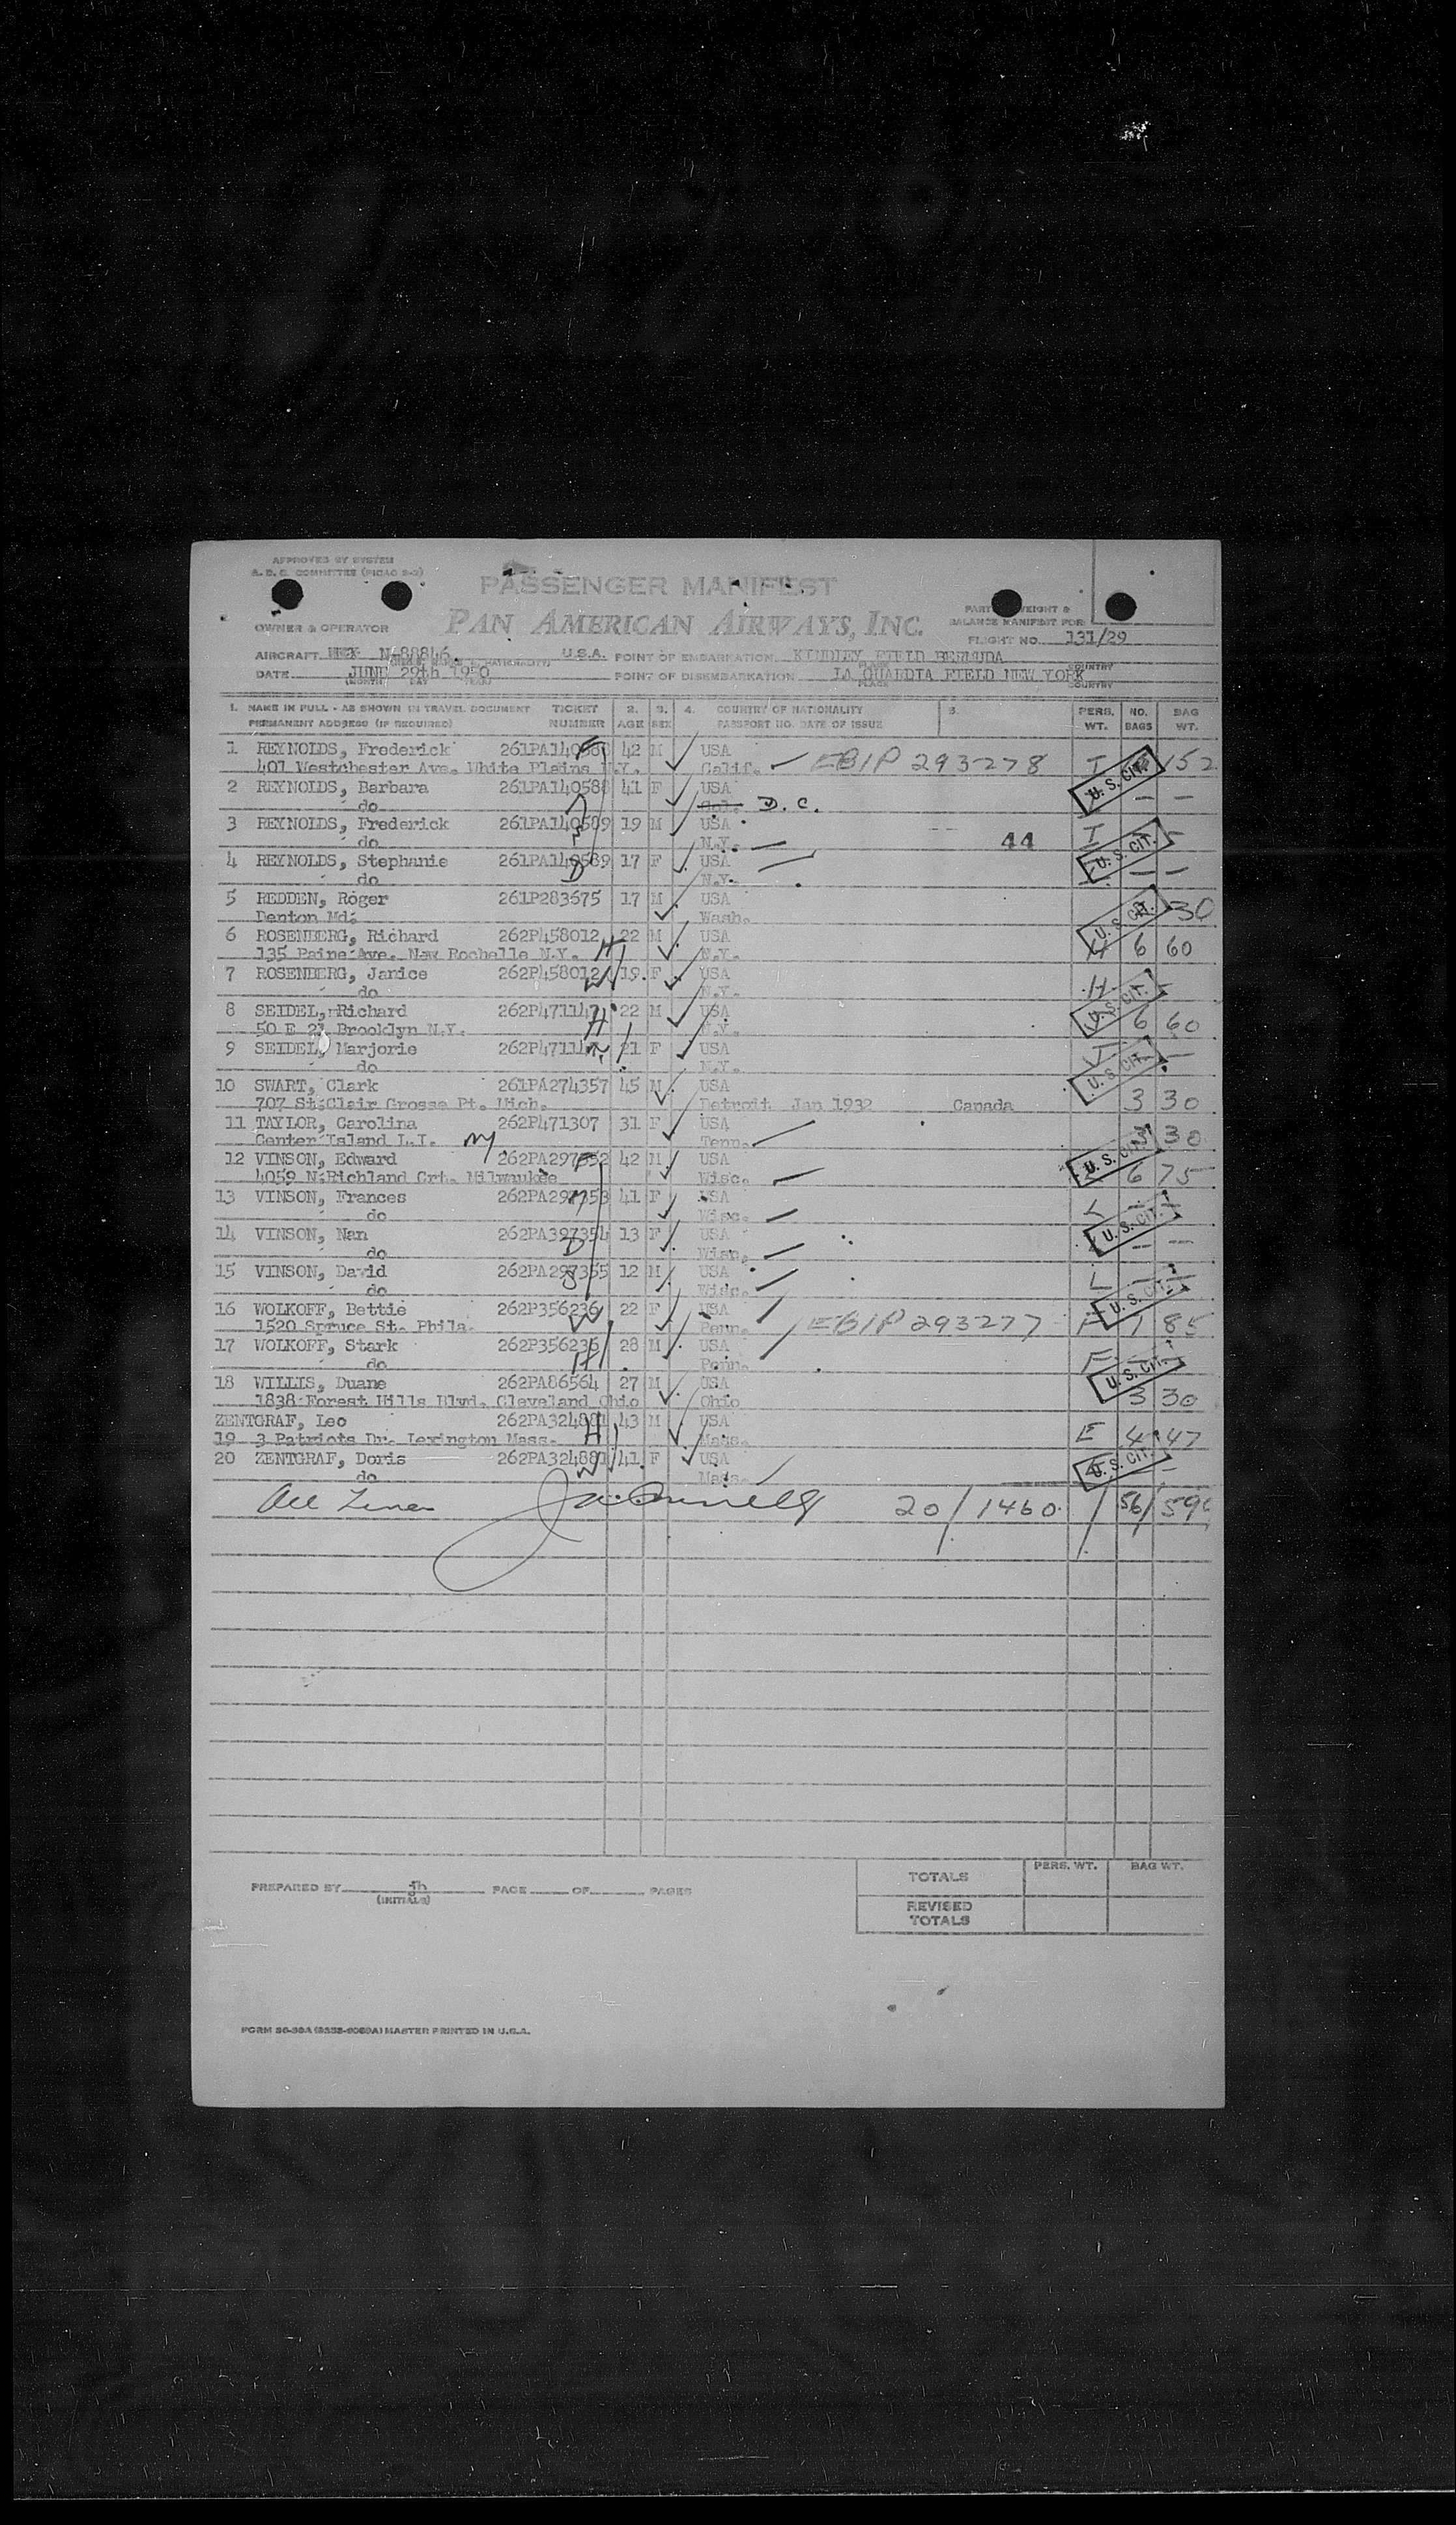 APPROVED BY SYSTEM
A. D. C. COMMITTEE (PICAO 2-2)
PASSENGER MANIFEST
PAN AMERICAN AIRWAYS, INC.
OWNER & OPERATOR
PART WEIGHT &
BALANCE MANIFEST FOR
FLIGHT NO. 131/29
AIRCRAFT N-88846 U.S.A. POINT OF EMBARKATION KINDLEY FIELD BERMUDA
DATE JUNE 29th 1950 POINT OF DISEMBARKATION LA QUARDIA FIELD NEW YORK
(MONTH) DAY YEAR) PLACE COUNTRY
1. NAME IN FULL - AS SHOWN IN TRAVEL DOCUMENT TICKET 2. 3. 4. COUNTRY OF NATIONALITY 5. PERS. NO. BAG
PERMANENT ADDRESS (IF REQUIRED) NUMBER AGE SEX PASSPORT NO. DATE OF ISSUE WT. BAGS WT.
1 REYNOLDS, Frederick 261PA140588 42 M USA
401 Westchester Ave. White Plains N.Y. Calif. EBIP 293278 I 152
2 REYNOLDS, Barbara 261PA140588 41 F USA U. S. CIT.
do Cal. D. C. — —
3 REYNOLDS, Frederick 261PA140589 19 M USA
do N.Y. 44 I
4 REYNOLDS, Stephanie 261PA140589 17 F USA U. S. CIT.
do N.Y. — —
5 REDDEN, Roger 261P283675 17 M USA 30
Denton Md. Wash. U. S. CIT.
6 ROSENBERG, Richard 262P458012 22 M USA
135 Paine Ave. New Rochelle N.Y. H N.Y. H 6 60
7 ROSENBERG, Janice 262P458012 19 F USA
do W N.Y. H
8 SEIDEL, Richard 262P471147 22 M USA U. S. CIT.
50 E 21 Brooklyn N.Y. H N.Y. 6 60
9 SEIDEL, Marjorie 262P471147 21 F USA
do N.Y. U. S. CIT.
10 SWART, Clark 261PA274357 45 M USA
707 St.Clair Grosse Pt. Mich. Detroit Jan 1932 Canada 3 30
11 TAYLOR, Carolina 262P471307 31 F USA
Center Island L.I. NY Tenn. 3 30
12 VINSON, Edward 262PA297352 42 M USA U. S. CIT.
4059 N.Richland Crt. Milwaukee Wisc. 6 75
13 VINSON, Frances 262PA297353 41 F USA
do Wisc. L
14 VINSON, Nan 262PA397354 13 F USA U. S. CIT.
do D Wisc. — —
15 VINSON, David 262PA297355 12 M USA
do S Wisc. L
16 WOLKOFF, Bettie 262P356236 22 F USA U. S. CIT.
1520 Spruce St. Phila. W Penn. EBIP 293277 F 1 85
17 WOLKOFF, Stark 262P356236 28 M USA
do H Penn. F
18 WILLIS, Duane 262PA86564 27 M USA U. S. CIT.
1838 Forest Hills Blvd. Cleveland Ohio Ohio 3 30
ZENTGRAF, Leo 262PA324881 43 M USA
19 3 Patriots Dr. Lexington Mass. H Mass. E 4 47
20 ZENTGRAF, Doris 262PA324881 41 F USA U. S. CIT.
do W Mass.
20 / 1460 / 56/
TOTALS PERS. WT. BAG WT.
PREPARED BY jh PAGE OF PAGES
(INITIALS)
REVISED
TOTALS
MASTER PRINTED IN U.S.A.